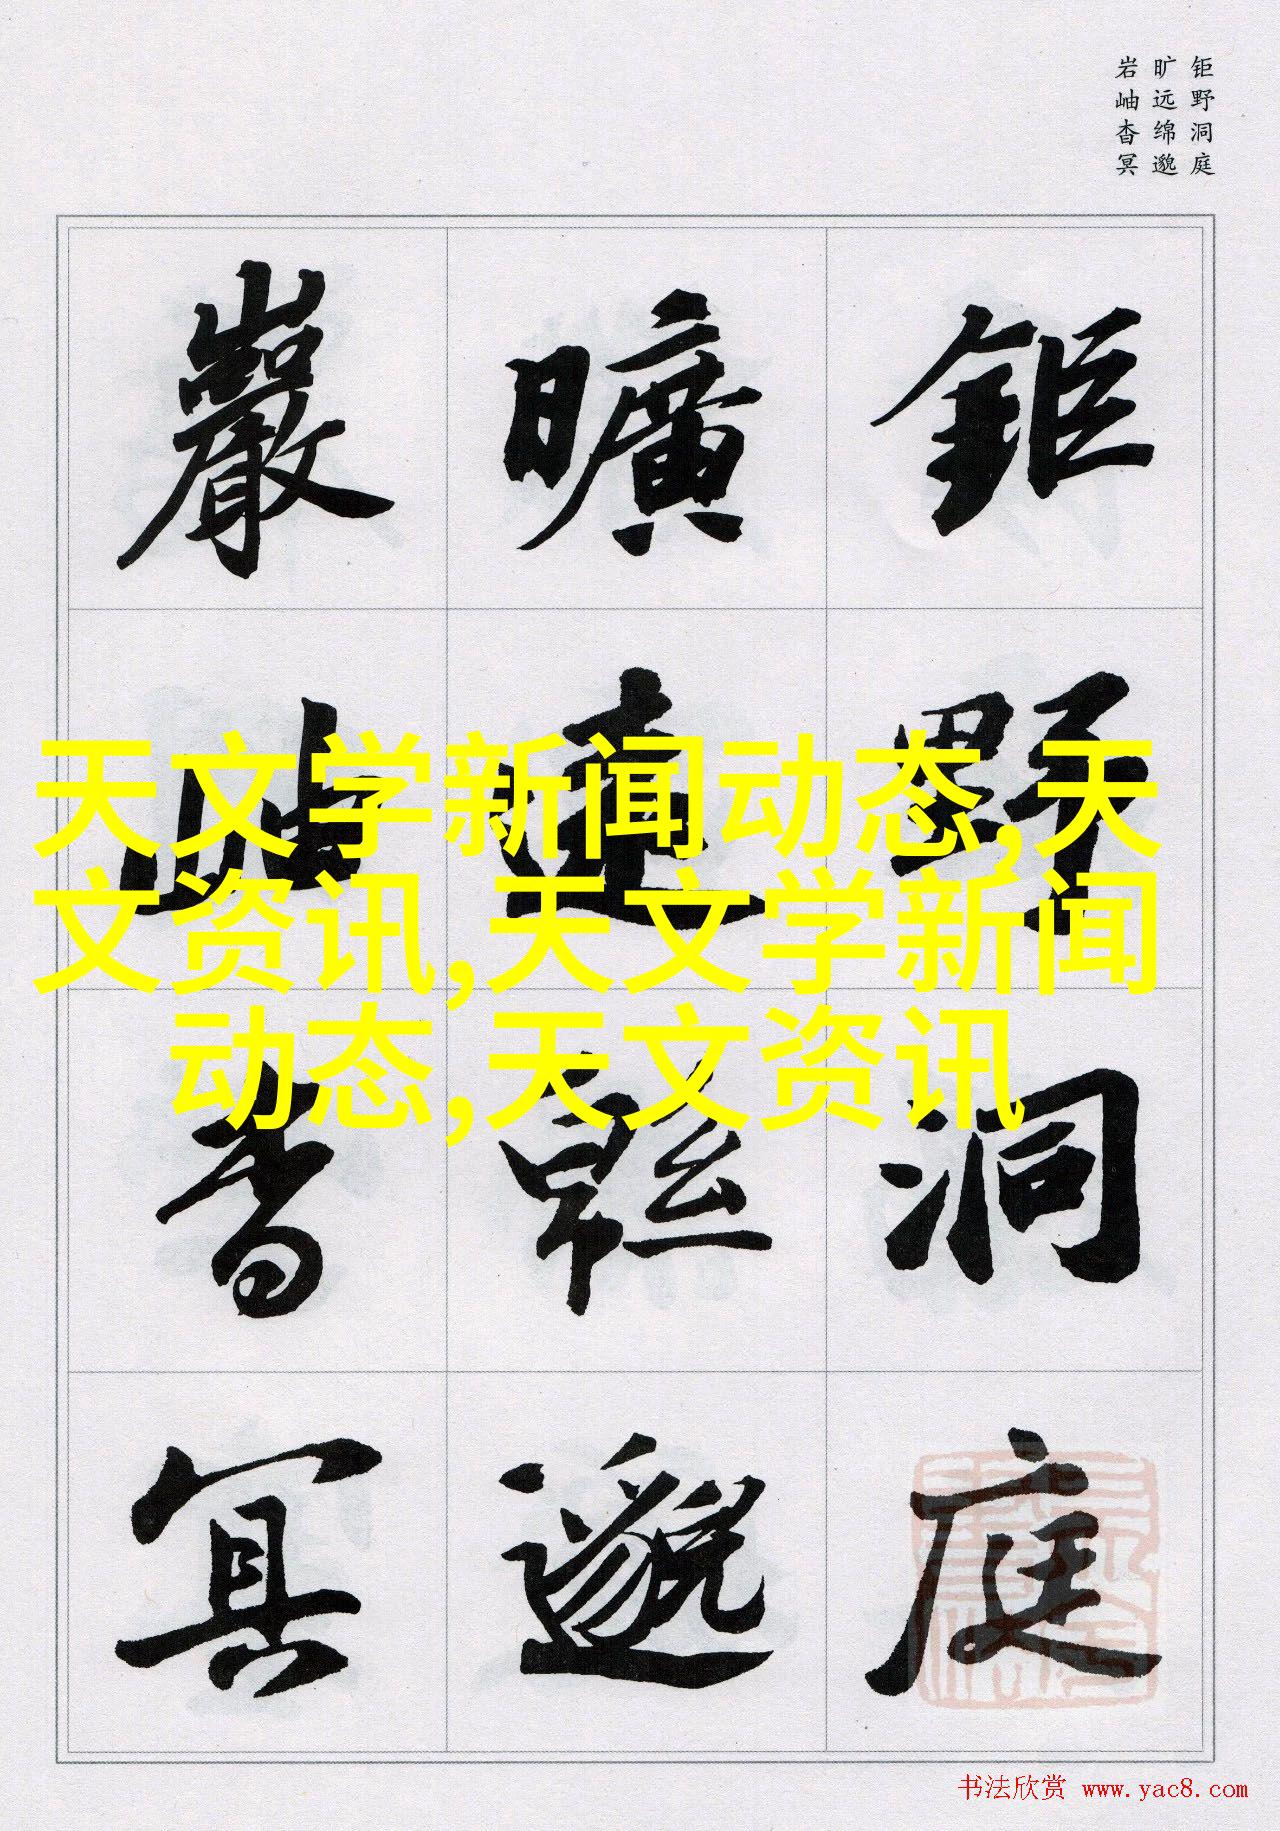 钜野洞庭
旷远绵邈
岩岫杳冥
鉅野洞庭
曠遠緜邈
巖岫杳冥
天文学新闻动态,天
文资讯,天文学新闻
动态,天文资讯
书法欣赏 www.yac8.com